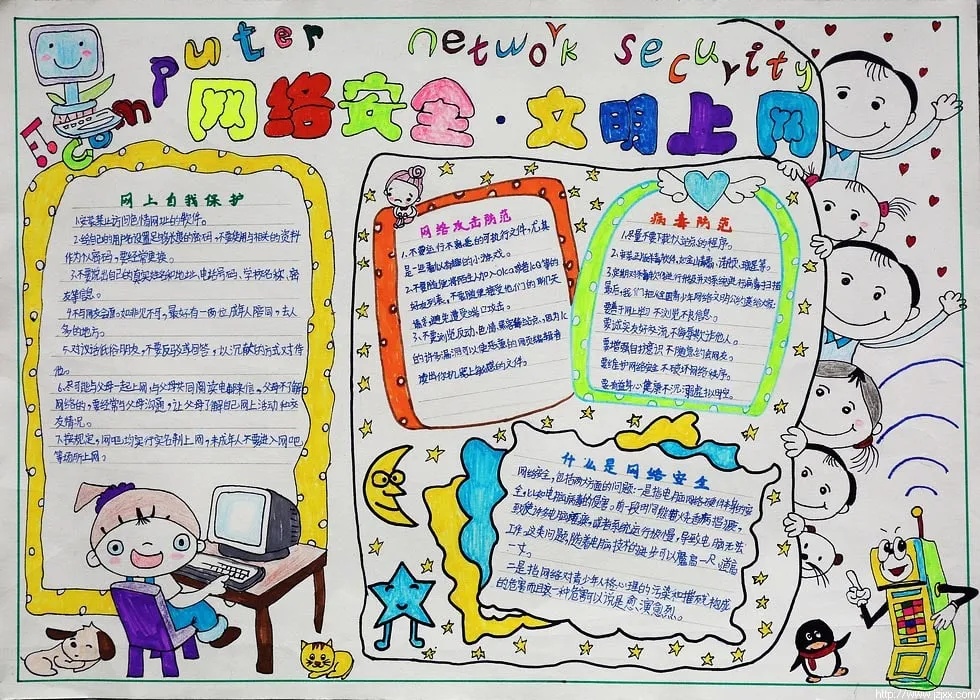 Computer network security
网络安全·文明上网
网上自我保护
1.安装禁止访问色情网址的软件。
2.给自己的用户名设置足够长度的密码,不要使用与相关的资料
作为密码,要经常更换。
3.不要说出自己的真实姓名和地址、电话号码、学校名称、密
友等信息。
4.不与网友会面:如非见不可,最好有一两位成年人陪同,去人
多的地方。
5.对谈话低俗朋友,不要反驳或回答,以沉默的方式对待
他。
6.尽可能与父母一起上网与父母共同阅读电邮来信,父母不了解
网络的,要经常与父母沟通,让父母了解自己网上活动和交
友情况。
7.按规定,网吧均实行实名制上网,未成年人不要进入网吧
等场所上网。
网络攻击防范
1.不要运行不熟悉的可执行文件,尤其
是一些看似有趣的小游戏。
2.不要随便将陌生人加入
好友列表,不要随便接受他们的聊天
请求,避免遭受端口攻击。
3.不要浏览反动、色情、黑客等站点,因为
的许多漏洞可以使恶意的网页编辑者
读出你机器上敏感的文件。
病毒防范
1.尽量不要下载站点的程序。
2.安装正版杀毒软件,如金山毒霸、
3.定期对杀毒软件进行升级并对系统进行病毒扫描
最后,我们把《全国青少年网络文明公约》送给大家:
要善于网上学习 不浏览不良信息。
要诚实友好交流 不侮辱欺诈他人。
要增强自护意识 不随意约会网友。
要维护网络安全 不破坏网络秩序。
要有益身心健康 不沉溺虚拟时空。
什么是网络安全
网络安全,包括两方面的问题:一是指电脑网络硬件本身的安
全,比如电脑病毒的侵害。前一段时间熊猫
工作。这类问题,随着电脑技术的进步可以魔高一尺,道高
一丈。
二是指网络对青少年人格心理的污染和摧残构成
的危害而且这一种危害可以说是愈演愈烈。
http://www.jzjxx.com/